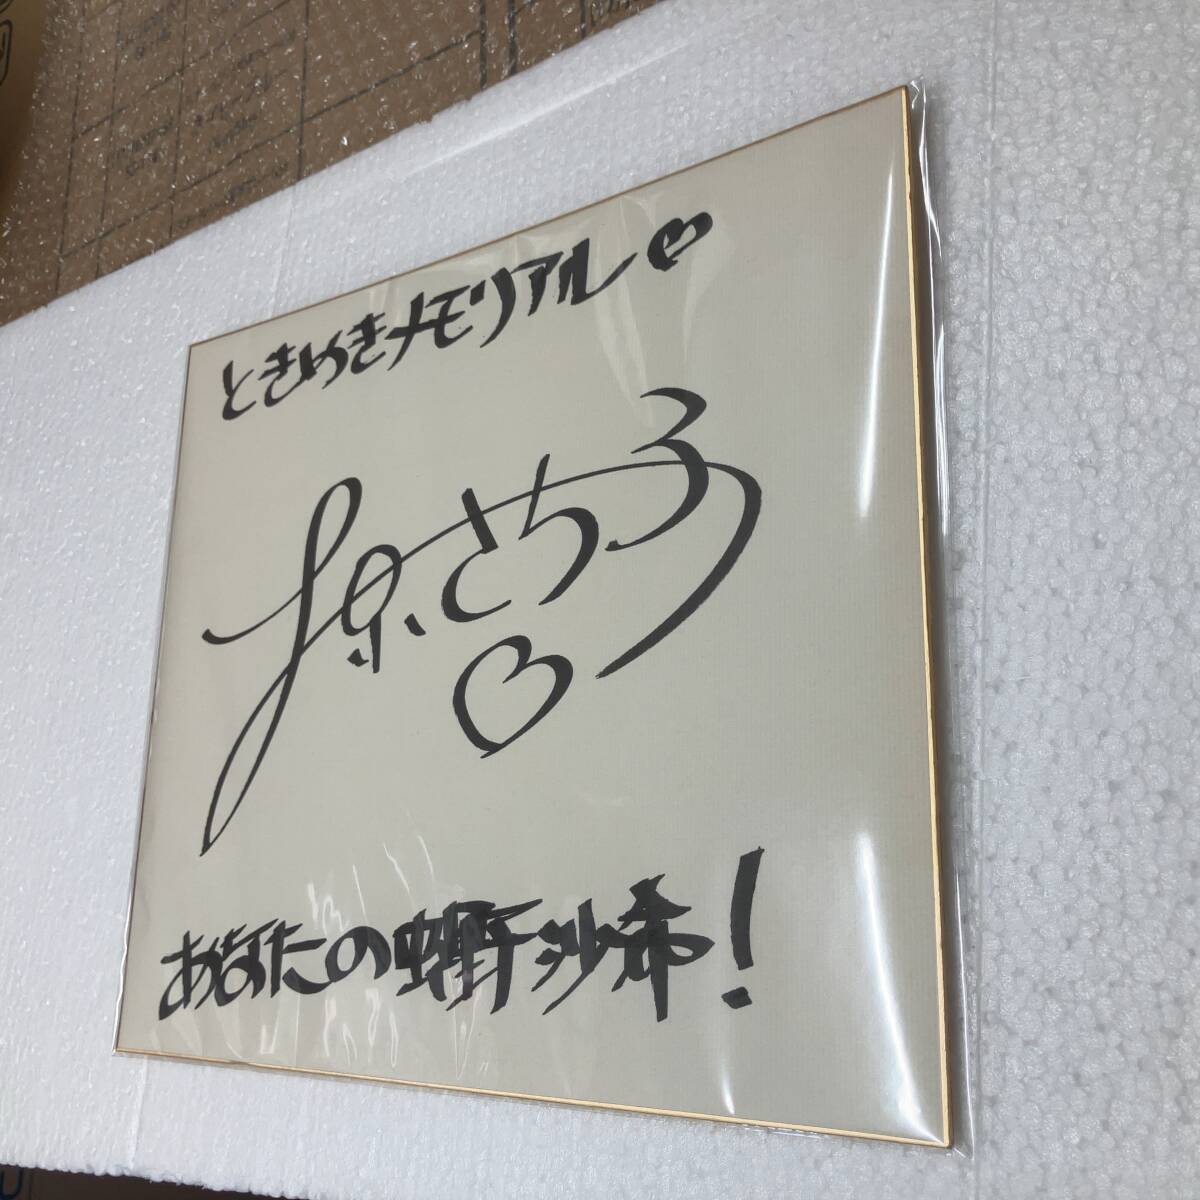 ときめきメモリアル♡
原さち子
♡
あなたの虹野沙希!